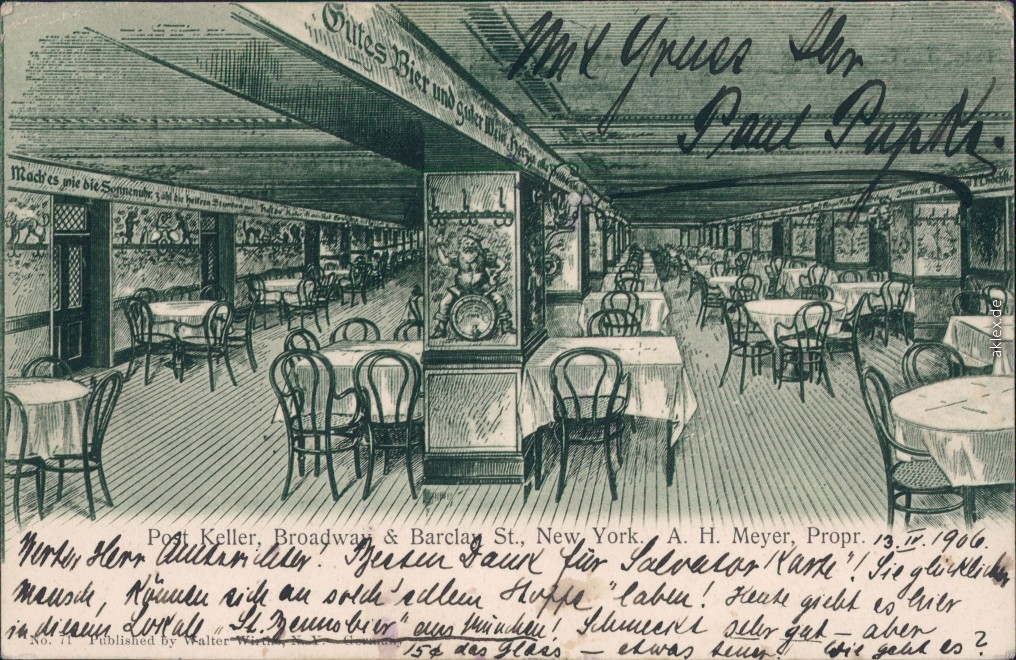 Mit Gruss Ihr
Paul
Gutes Bier und guter Wein
Mach' es wie die Sonnenuhr, zähl' die heitern Stunden nur
Post Keller, Broadway & Barclay St., New York. A. H. Meyer, Propr.
13. IV. 1906.
Werter Herr Amtsrichter! Besten Dank für „Salvator Karte"! Sie glücklicher
Mensch, können sich an solch' edlem Stoffe laben! Heute giebt es hier
in diesem Lokale „St. Bennobier" aus München! Schmeckt sehr gut – aber
15¢ das Glass – etwas teuer! Wie geht es?
No. 71 Published by Walter Wirths, N. Y. - Germany
aklex.de